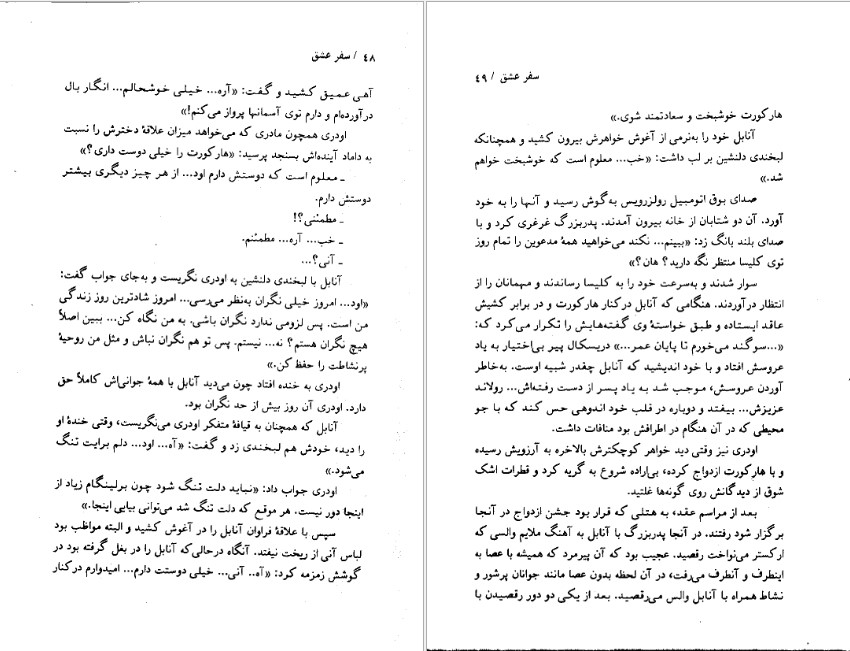 ۴۸ / سفر عشق
آهی عمیق کشید و گفت: «آره... خیلی خوشحالم... انگار بال
درآورده‌ام و دارم توی آسمانها پرواز می‌کنم!»
اودری همچون مادری که می‌خواهد میزان علاقهٔ دخترش را نسبت
به داماد آینده‌اش بسنجد پرسید: «هارکورت را خیلی دوست داری؟»
ـ معلوم است که دوستش دارم اود... از هر چیز دیگری بیشتر
دوستش دارم.
ـ مطمئنی؟!
ـ خب... آره... مطمئنم.
ـ آنی؟...
آنابل با لبخندی دلنشین به اودری نگریست و به‌جای جواب گفت:
«اود... امروز خیلی نگران به‌نظر می‌رسی... امروز شادترین روز زندگی
من است. پس لزومی ندارد نگران باشی. به من نگاه کن... ببین اصلاً
هیچ نگران هستم؟ نه... نیستم. پس تو هم نگران نباش و مثل من روحیهٔ
پرنشاطت را حفظ کن.»
اودری به خنده افتاد چون می‌دید آنابل با همهٔ جوانی‌اش کاملاً حق
دارد. اودری آن روز بیش از حد نگران بود.
آنابل که همچنان به قیافهٔ متفکر اودری می‌نگریست، وقتی خندهٔ او
را دید، خودش هم لبخندی زد و گفت: «آه... اود... دلم برایت تنگ
می‌شود.»
اودری جواب داد: «نباید دلت تنگ شود چون برلینگام زیاد از
اینجا دور نیست. هر موقع که دلت تنگ شد می‌توانی بیایی اینجا.»
سپس با علاقهٔ فراوان آنابل را در آغوش کشید و البته مواظب بود
لباس آنی از ریخت نیفتد. آنگاه درحالی‌که آنابل را در بغل گرفته بود در
گوشش زمزمه کرد: «آه.. آنی... خیلی دوستت دارم... امیدوارم درکنار
سفر عشق / ۴۹
هارکورت خوشبخت و سعادتمند شوی.»
آنابل خود را به‌نرمی از آغوش خواهرش بیرون کشید و همچنانکه
لبخندی دلنشین بر لب داشت: «خب... معلوم است که خوشبخت خواهم
شد.»
صدای بوق اتومبیل رولزرویس به‌گوش رسید و آنها را به خود
آورد. آن دو شتابان از خانه بیرون آمدند. پدربزرگ غرغری کرد و با
صدای بلند بانگ زد: «ببینم... نکند می‌خواهید همهٔ مدعوین را تمام روز
توی کلیسا منتظر نگه دارید؟ هان؟»
سوار شدند و به‌سرعت خود را به کلیسا رساندند و مهمانان را از
انتظار درآوردند. هنگامی که آنابل درکنار هارکورت و در برابر کشیش
عاقد ایستاده و طبق خواستهٔ وی گفته‌هایش را تکرار می‌کرد که:
«...سوگند می‌خورم تا پایان عمر...» دریسکال پیر بی‌اختیار به یاد
عروسش افتاد و با خود اندیشید که آنابل چقدر شبیه اوست. به‌خاطر
آوردن عروسش، موجب شد به یاد پسر از دست رفته‌اش... رولاند
عزیزش... بیفتد و دوباره در قلب خود اندوهی حس کند که با جو
محیطی که در آن هنگام در اطرافش بود منافات داشت.
اودری نیز وقتی دید خواهر کوچکترش بالاخره به آرزویش رسیده
و با هارکورت ازدواج کرده، بی‌اراده شروع به گریه کرد و قطرات اشک
شوق از دیدگانش روی گونه‌ها غلتید.
بعد از مراسم عقد، به هتلی که قرار بود جشن ازدواج در آنجا
برگزار شود رفتند. در آنجا پدربزرگ با آنابل به آهنگ ملایم والسی که
ارکستر می‌نواخت رقصید. عجیب بود که آن پیرمرد که همیشه با عصا به
اینطرف و آنطرف می‌رفت، در آن لحظه بدون عصا مانند جوانان پرشور و
نشاط همراه با آنابل والس می‌رقصید. بعد از یکی دو دور رقصیدن با